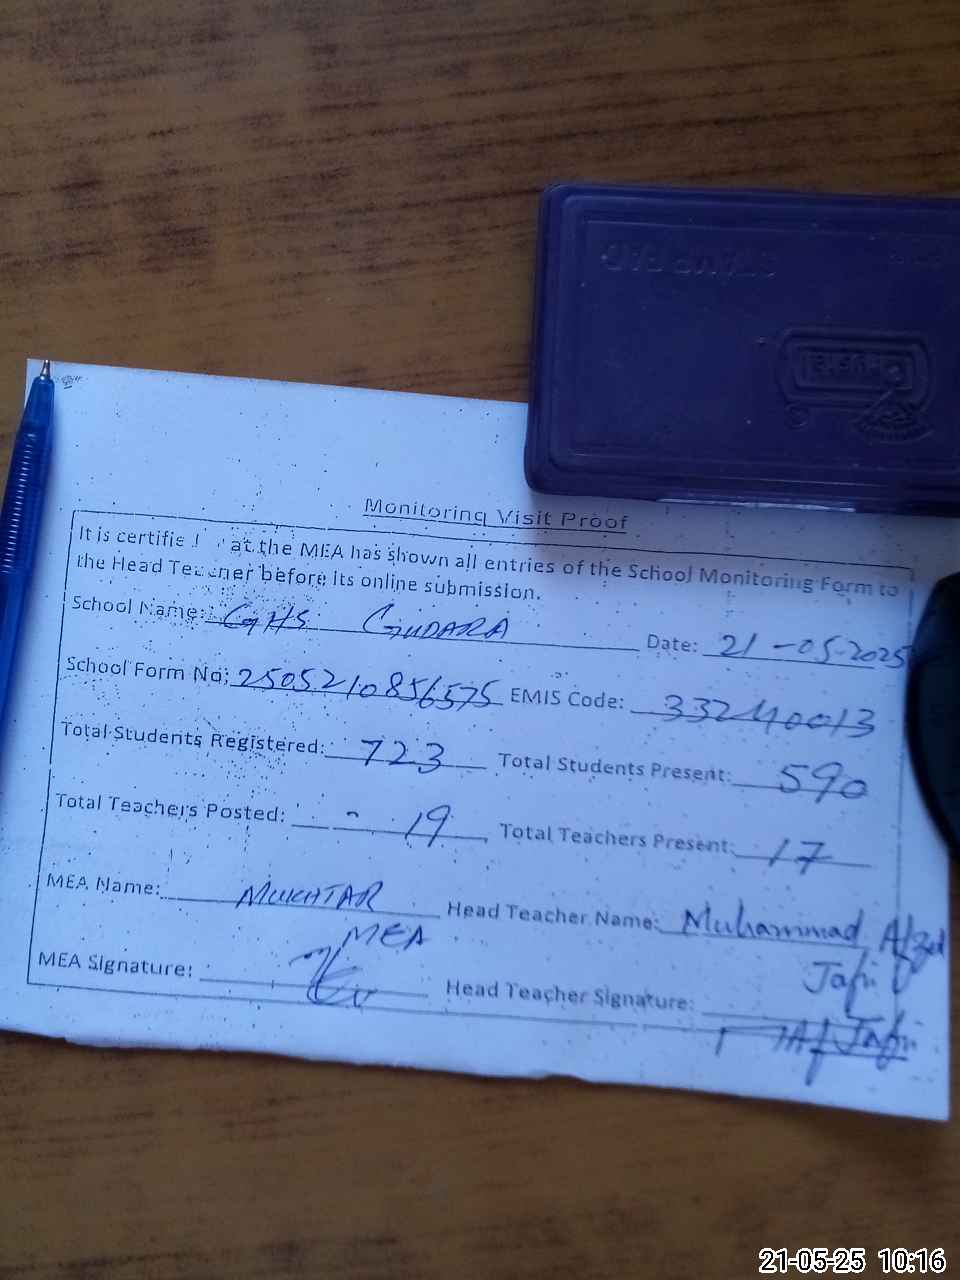 STAMP PAD
Crystal
Monitoring Visit Proof
It is certified that the MEA has shown all entries of the School Monitoring Form to
the Head Teacher before its online submission.
School Name: GHS GUDARA Date: 21-05-2025
School Form No: 2505210856575 EMIS Code: 33240013
Total Students Registered: 723 Total Students Present: 590
Total Teachers Posted: - 19 Total Teachers Present: 17
MEA Name: MUKHTAR Head Teacher Name: Muhammad Afzal
MEA Jafri
MEA Signature: Head Teacher Signature:
Jafri
21-05-25 10:16